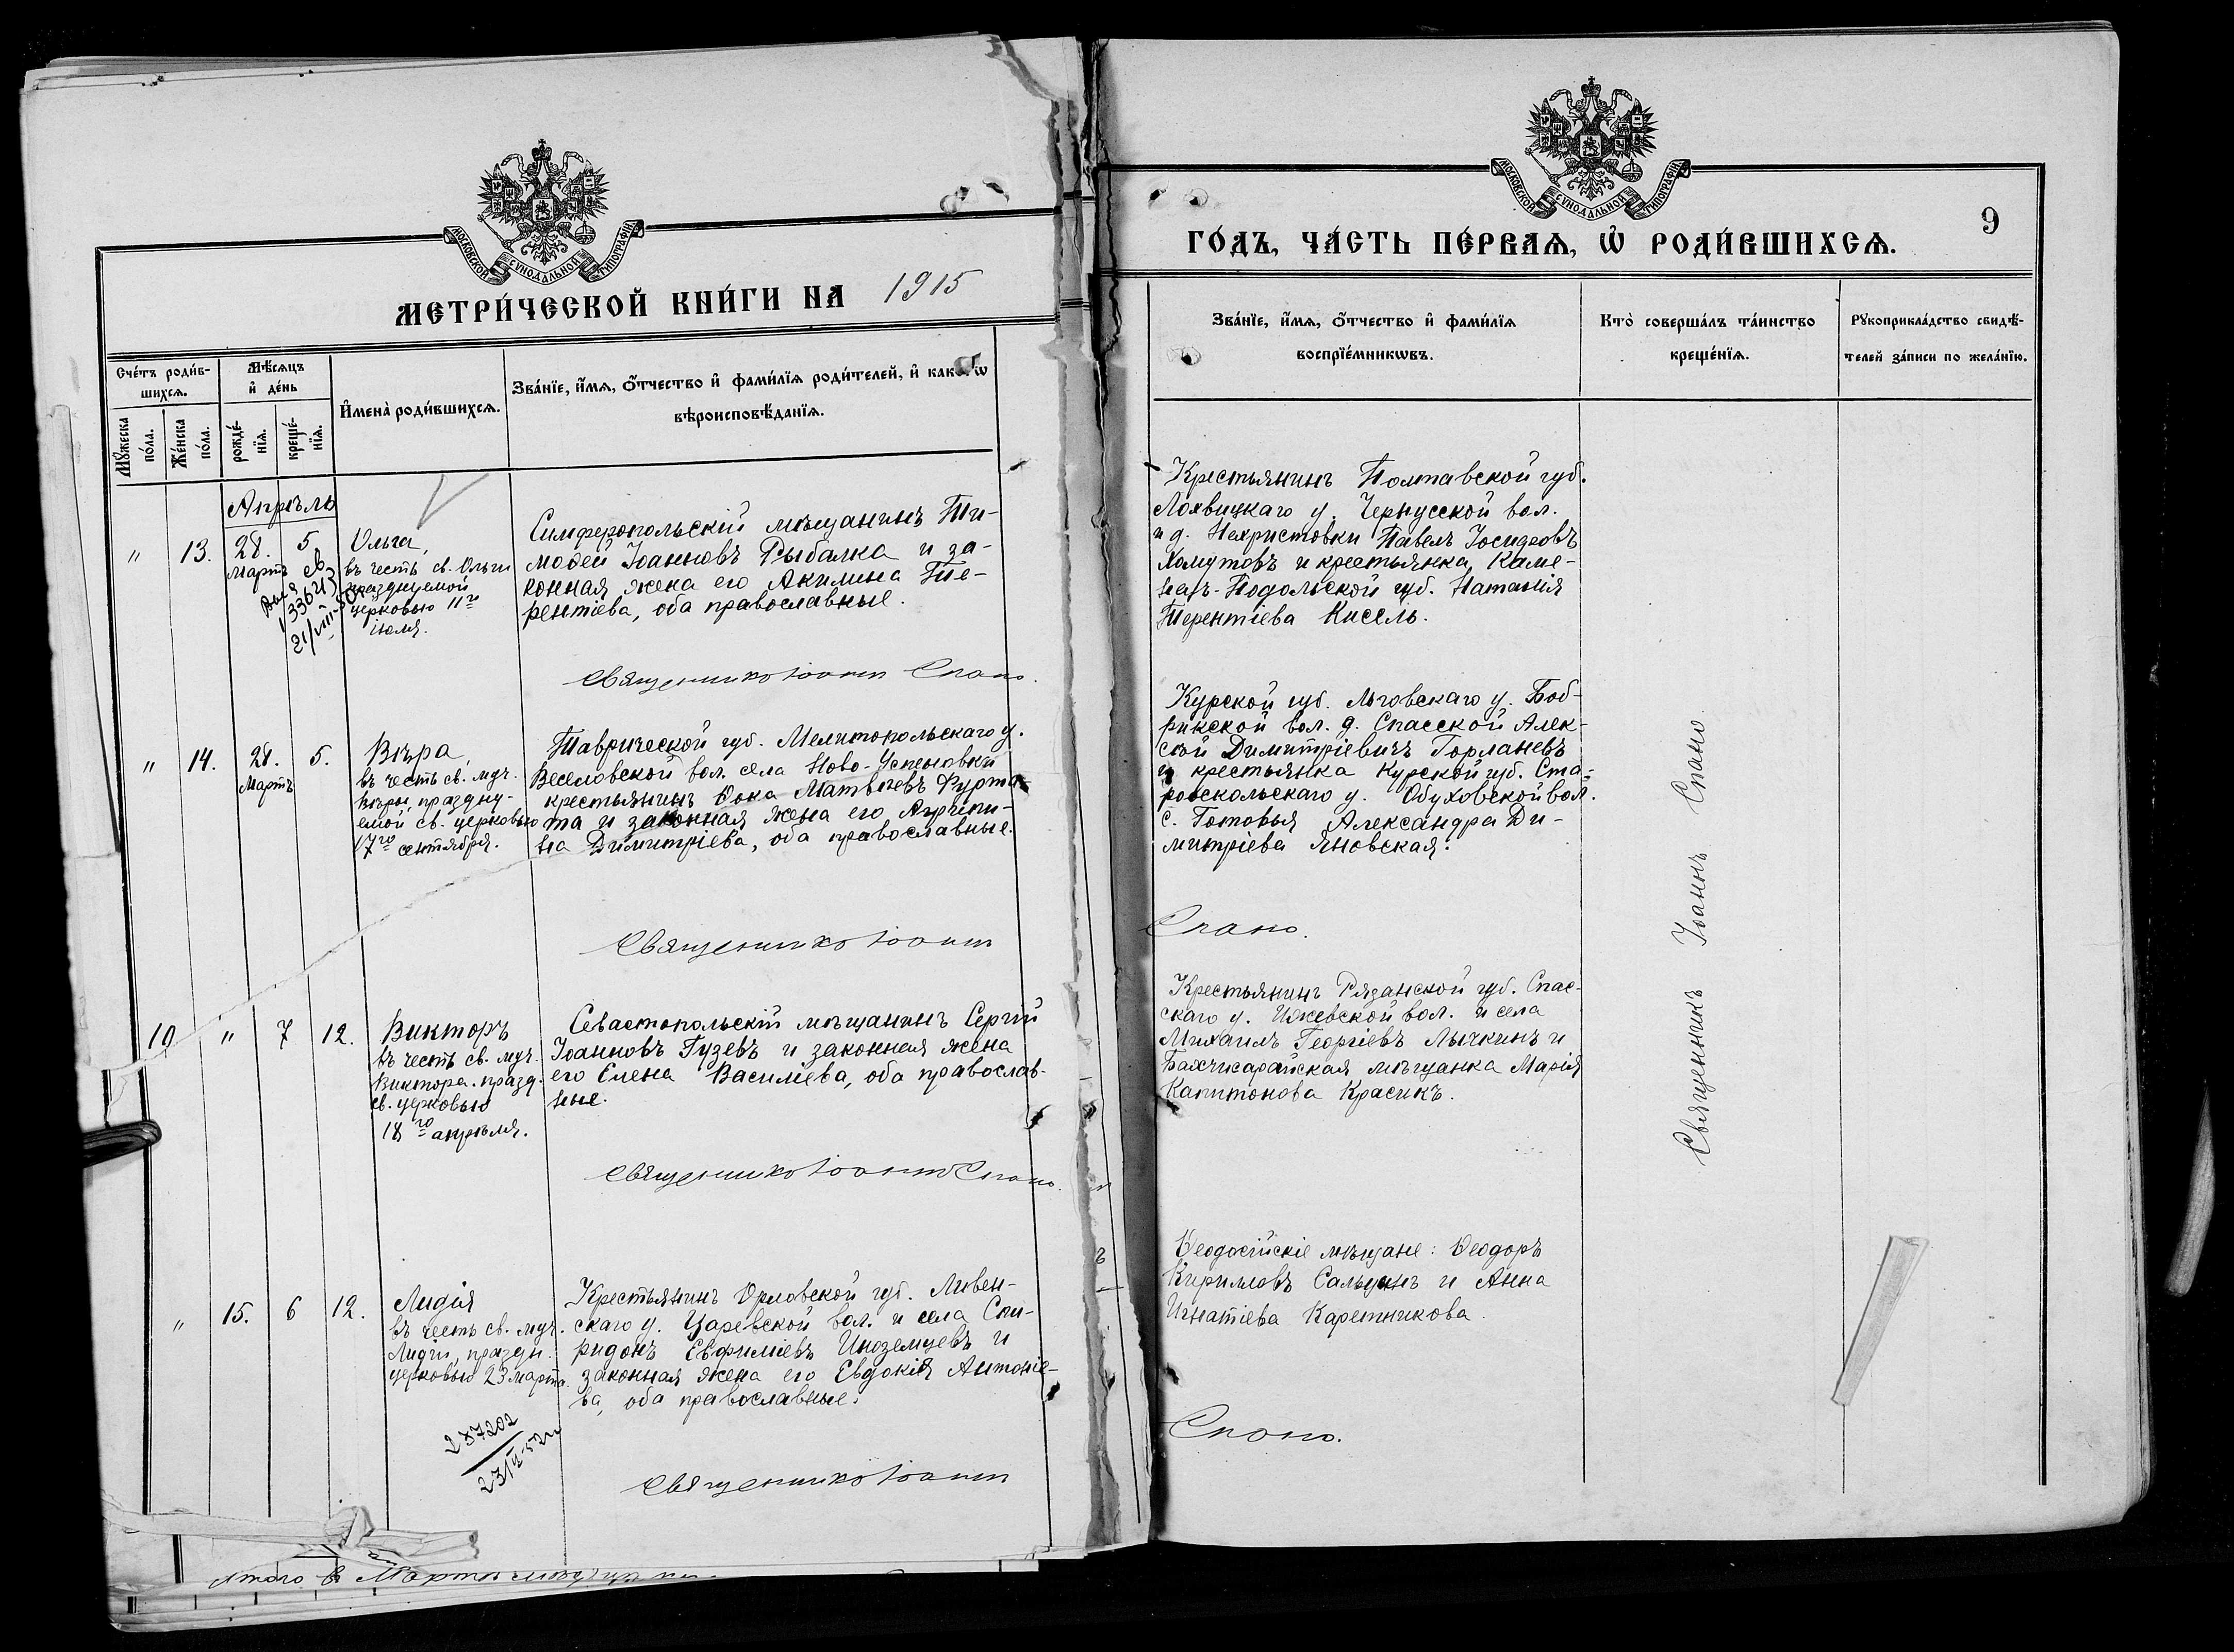 МОСКОВСКОЙ СѴНОДАЛЬНОЙ ТИПОГРАФІИ
МЕТРИ́ЧЕСКОЙ КНИ́ГИ НА 1915
Сче́тъ роди́в-
шихсѧ.
Мѣ́сѧцъ
и҆ де́нь
Мꙋ́жеска
по́ла.
Же́нска
по́ла.
рожде́-
нїѧ.
креще́-
нїѧ.
И҆мена̀ роди́вшихсѧ.
Зва́нїе, и҆́мѧ, ѻ҆́тчество и҆ фами́лїѧ роди́телей, и҆ како́гѡ
вѣроисповѣ́данїѧ.
Апрѣль
" 13. 28. 5
Мартъ
Ольга,
въ честь св. Ольги
празднуемой
церковью 11го
іюля.
133643
21/VIII-50
Симферопольскій мѣщанинъ Ти-
моѳей Іоанновъ Рыбалка и за-
конная жена его Акилина Те-
рентіева, оба православные.
Священникъ Іоаннъ Спано.
" 14. 28. 5.
Мартъ
Вѣра,
въ честь св. муч.
Вѣры, праздну-
емой св. церковью
17го сентября.
Таврической губ. Мелитопольскаго у.
Веселовской вол. села Ново-Успеновки
крестьянинъ Ѳока Матвѣевъ Фурта-
та и законная жена его Агриппи-
на Димитріева, оба православные.
Священникъ Іоаннъ
10 " 7 12.
Викторъ
въ честь св. муч.
Виктора. празд.
св. церковью
18го апрѣля.
Севастопольскій мѣщанинъ Сергій
Іоанновъ Гузевъ и законная жена
его Елена Василіева, оба православ-
ные.
Священникъ Іоаннъ Спано.
" 15. 6 12.
Лидія
въ честь св. муч.
Лидіи, праздн.
церковью 23 марта.
287202
Крестьянинъ Орловской губ. Ливен-
скаго у. Царевской вол. и села Спи-
ридонъ Евфиміевъ Иноземцевъ и
законная жена его Евдокія Антоніе-
ва, оба православные.
Священникъ Іоаннъ
МОСКОВСКОЙ СѴНОДАЛЬНОЙ ТИПОГРАФІИ
9
ГО́ДЪ, ЧА́СТЬ ПЕ́РВАѦ, Ѡ҆ РОДИ́ВШИХСѦ.
Зва́нїе, и҆́мѧ, ѻ҆́тчество и҆ фами́лїѧ
воспрїе́мникѡвъ.
Кто̀ соверша́лъ та́инство
креще́нїѧ.
Рꙋкоприкла́дство свидѣ́-
телей за́писи по жела́нїю.
Крестьянинъ Полтавской губ.
Лохвицкаго у. Чернусской вол.
и д. Нехристовки Павелъ Іосифовъ
Хомутовъ и крестьянка Каме-
нец-Подольской губ. Наталія
Терентіева Кисель.
Курской губ. Льговскаго у. Боб-
рикской вол. д. Спасской Алек-
сѣй Димитріевичъ Горланевъ
и крестьянка Курской губ. Ста-
рооскольскаго у. Обуховской вол.
с. Готовья Александра Ди-
митріева Яновская.
Спано.
Крестьянинъ Рязанской губ. Спас-
скаго у. Ижевской вол. и села
Михаилъ Георгіевъ Лычкинъ и
Бахчисарайская мѣщанка Марія
Капитонова Красикъ.
Ѳеодосійскіе мѣщане: Ѳеодоръ
Кирилловъ Сальцинъ и Анна
Игнатіева Каретникова.
Спано.
Священникъ Іоаннъ Спано.